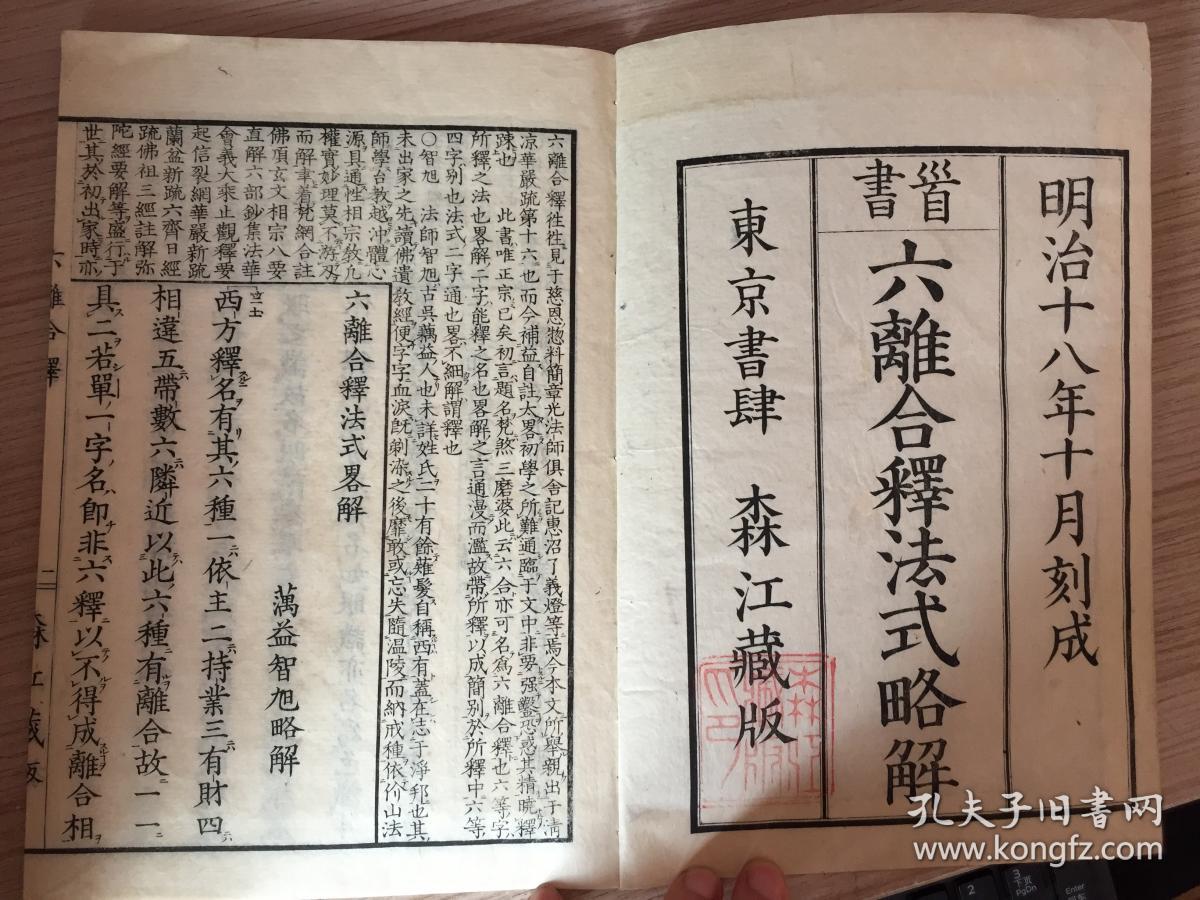 明治十八年十月刻成
首書
六離合釋法式略解
東京書肆 森江藏版
六離合釋徃徃見于慈恩惣料簡章光法師俱舍記惠沼了義燈等焉今本文所舉親出于淸
凉華嚴疏第十六也而今補益自註太畧初學之所難通臨于文中非要强鑿恐惑其精曉釋
踈也 此書唯正宗已矣初言題名梵煞三磨婆此云六合亦可名爲六離合釋也六等字
所釋之法也畧解二字能釋之名也畧解之言通漫而濫故帶所釋以成簡別於所釋中六等
四字别也法式二字通也畧不細解謂釋也
〇智旭 法師智旭古吳藕益人也未詳姓氏二十有餘薙髮自稱西有蓋在志于淨邦也其
未出家之先讀佛遺敎經便字字血淚旣剃染之後靡敢或忘失隨温陵而納戒種依价山法
師學台教越冲體心
源具通性相宗教凡
權實妙理莫不游刃
而解聿着梵網合註
佛頂玄文相宗八要
直解六部鈔集法華
會義大乘止觀釋要
起信裂網華嚴新疏
蘭盆新疏六齊日經
疏佛祖三經註解弥
陀經要解等盛行于
世其於初出家時亦
六離合釋法式畧解
蕅益智旭略解
西方釋名有其六種一依主二持業三有財四
相違五帶數六隣近以此六種有離合故一一
具二若單一字名卽非六釋以不得成離合相
六離合釋 一 森江藏版
孔夫子旧书网
www.kongfz.com
2
3
PgDn
Enter